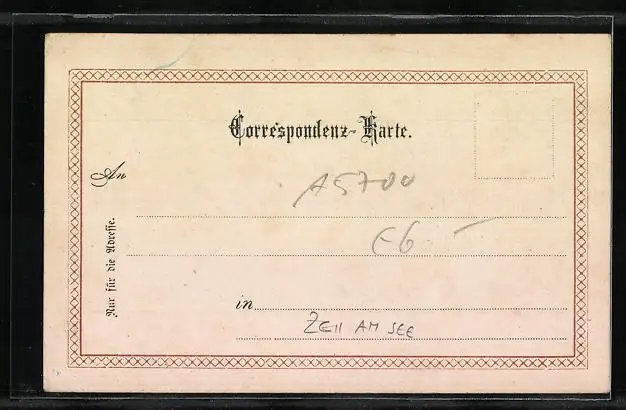 Correspondenz-Karte.
An
A5700
€6 —
Nur für die Adresse.
in
ZELL AM SEE